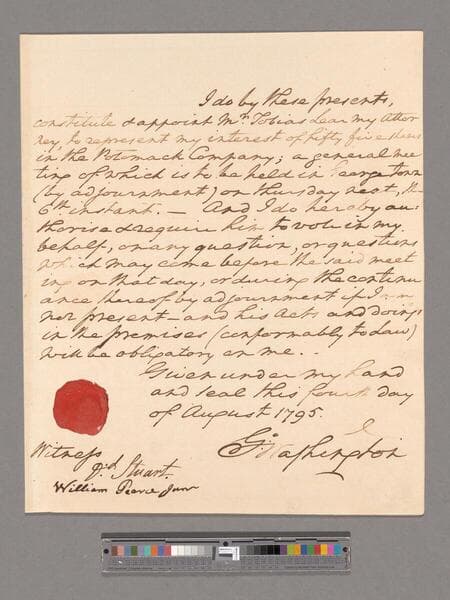 I do by these presents,
constitute & appoint Mr. Tobias Lear my attor
ney, to represent my interest of fifty five shares
in the Potomack Company; a general mee
ting of which is to be held in George Town
(by adjournment) on thursday next, the
6th instant. — And I do hereby au
thorise & require him to vote in my
behalf, on any question, or questions
which may come before the said meet
ing on that day, or during the continu
ance thereof by adjournment if I am
not present — and his acts and doings
in the premises (conformably to Law)
will be obligatory on me. —
Given under my hand
and seal this fourth day
of August 1795.
G: Washington
Witness
Dd. Stuart.
William Pearce Junr